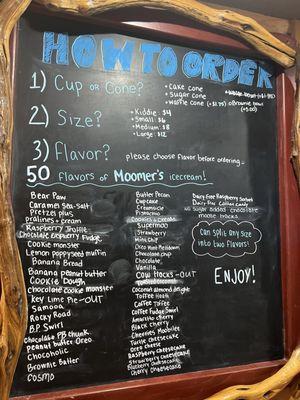 HOW TO ORDER
1) Cup OR Cone?
+ Cake cone
+ sugar cone
+ waffle cone (+$1.75)
+ Brownie bowl (+$3.00)
2) Size?
• Kiddie: $4
• Small: $6
• Medium: $8
• Large: $12
3) Flavor?
please choose flavor before ordering...
50 Flavors of Moomer's icecream!
Bear Paw
Caramel Sea-Salt
Pretzel plus
pralines + cream
Raspberry Truffle
Chocolate raspberry Fudge
Cookie monster
Lemon poppyseed muffin
Banana Bread
Banana peanut butter
Cookie Dough
chocolate cookie monster
key lime Pie-OUT
Samooa
Rocky Road
B.P. Swirl
chocolate pb chunk
peanut butter Oreo
Chocoholic
Brownie Batter
Cosmo
Butter Pecan
Cupcake
Creamsicle
Pistachio
cookies + cream
Supermoo
Strawberry
Mint Chip
Oreo mint Meltdown
Chocolate chip
Chocolate
Vanilla
Cow tracks-OUT
coconut almond delight
Toffee Hash
Coffee Toffee
Coffee Fudge Swirl
Amaretto cherry
Black cherry
Cherries Moobilee
Turtle cheesecake
Oreo cheese
Raspberry cheesecake
Strawberry cheesecake
Blueberry cheesecake
Cherry cheesecake
Dairy Free Raspberry Sorbet
Dairy Free
No sugar added chocolate
moose tracks
Can split any size
into two flavors!
ENJOY!